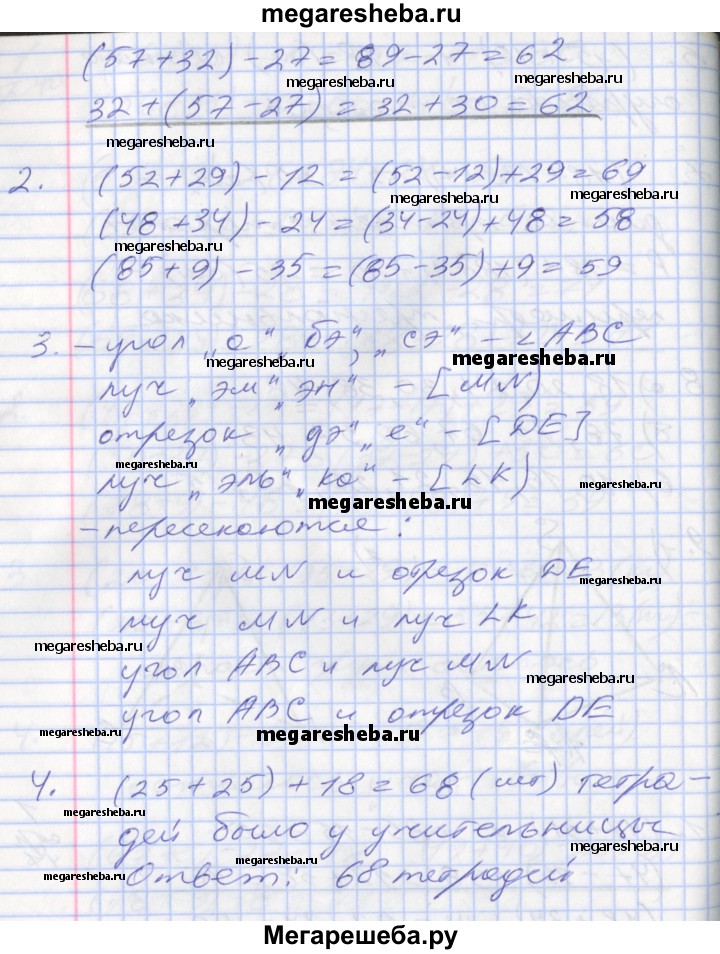 megaresheba.ru
(57+32) - 27 = 89 - 27 = 62
megaresheba.ru megaresheba.ru
32 + (57 - 27) = 32 + 30 = 62
megaresheba.ru megaresheba.ru
2. (52 + 29) - 12 = (52 - 12) + 29 = 69
megaresheba.ru megaresheba.ru
(48 + 34) - 24 = (34 - 24) + 48 = 58
megaresheba.ru megaresheba.ru
(85 + 9) - 35 = (85 - 35) + 9 = 59
3. - угол „а“, бэ“, „сэ“ - ∠ABC
megaresheba.ru megaresheba.ru
луч „эм“ „эн“ - [MN)
отрезок „дэ„ е“ - [DE]
megaresheba.ru megaresheba.ru
луч „эль“ „ка“ - [LK)
megaresheba.ru megaresheba.ru
- пересекаются:
луч MN и отрезок DE
megaresheba.ru
луч MN и луч LK
megaresheba.ru
угол ABC и луч MN
megaresheba.ru
угол ABC и отрезок DE
megaresheba.ru
4. (25 + 25) + 18 = 68 (шт) тетра-
megaresheba.ru megaresheba.ru
дей было у учительницы
megaresheba.ru megaresheba.ru
Ответ: 68 тетрадей
megaresheba.ru megaresheba.ru
Мегарешеба.ру